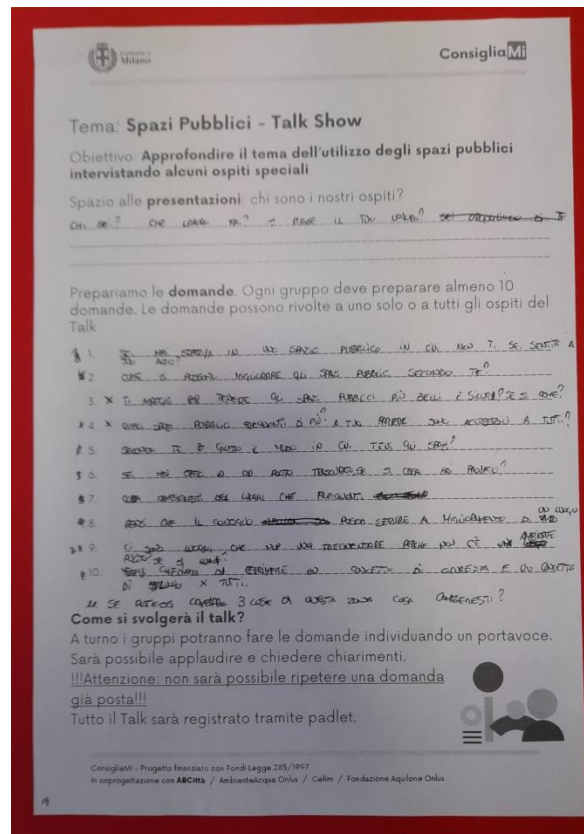 Comune di
Milano
ConsigliaMi
Tema: Spazi Pubblici - Talk Show
Obiettivo: Approfondire il tema dell'utilizzo degli spazi pubblici
intervistando alcuni ospiti speciali
Spazio alle presentazioni: chi sono i nostri ospiti?
CHI SEI? CHE LAVORO FAI? TI PIACE IL TUO LAVORO?
Prepariamo le domande. Ogni gruppo deve preparare almeno 10
domande. Le domande possono rivolte a uno solo o a tutti gli ospiti del
Talk
1. SEI MAI STATO/A IN UNO SPAZIO PUBBLICO IN CUI NON TI SEI SENTITO A
TUO AGIO?
2. COME SI POSSONO MIGLIORARE GLI SPAZI PUBBLICI SECONDO TE?
3. X TI PER TENERE GLI SPAZI PUBBLICI PIÙ BELLI E SICURI? SE SI COME?
4. X QUALI SPAZI PUBBLICI FREQUENTI DI PIÙ? A TUO PARERE SONO ACCESSIBILI A TUTTI?
5. SECONDO TE È GIUSTO IL MODO IN CUI TIENI GLI SPAZI?
6. SEI MAI STATO IN UN POSTO TRASCURATO, SE SI COSA HAI PROVATO?
7. COSA DEI LUOGHI CHE FREQUENTI
8. PENSI CHE IL CONSIGLIO POSSA SERVIRE A MIGLIORAMENTO DI UN LUOGO
9. CI SONO LUOGHI CHE NON FREQUENTARE PERCHÈ NON C'È AMBIENTE
SE SI QUALI?
10. DI UN OGGETTO DI SICUREZZA E UN OGGETTO
DI X TUTTI.
11. SE POTESSI CAMBIARE 3 COSE DI QUESTA ZONA COSA CAMBIERESTI?
Come si svolgerà il talk?
A turno i gruppi potranno fare le domande individuando un portavoce.
Sarà possibile applaudire e chiedere chiarimenti.
!!!Attenzione: non sarà possibile ripetere una domanda
già posta!!!
Tutto il Talk sarà registrato tramite padlet.
ConsigliaMi - Progetto finanziato con Fondi Legge 285/1997
In coprogettazione con ABCittà / AmbienteAcqua Onlus / Celim / Fondazione Aquilone Onlus